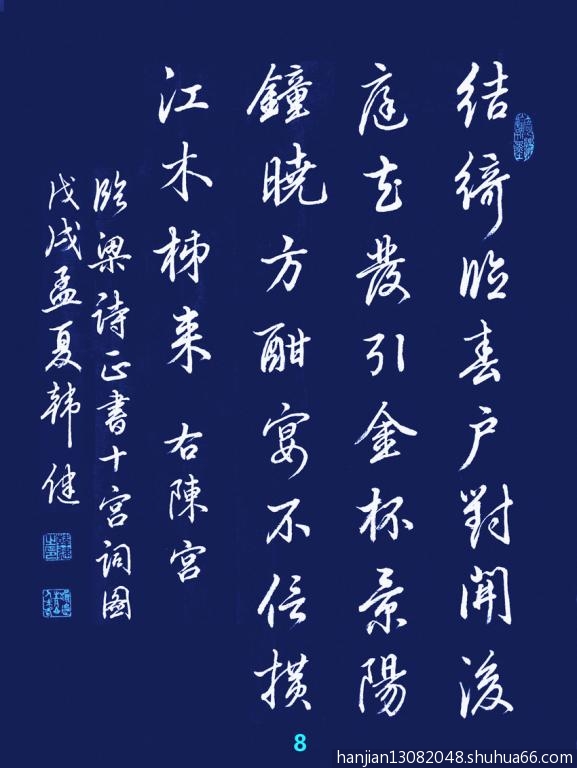 结绮临春户對開後
庭花發引金杯景陽
鐘曉方酣宴不信橫
江木柹来 右陳宫
临梁诗正書十宫词图
戊戌孟夏韩健
8
hanjian13082048.shuhua66.com